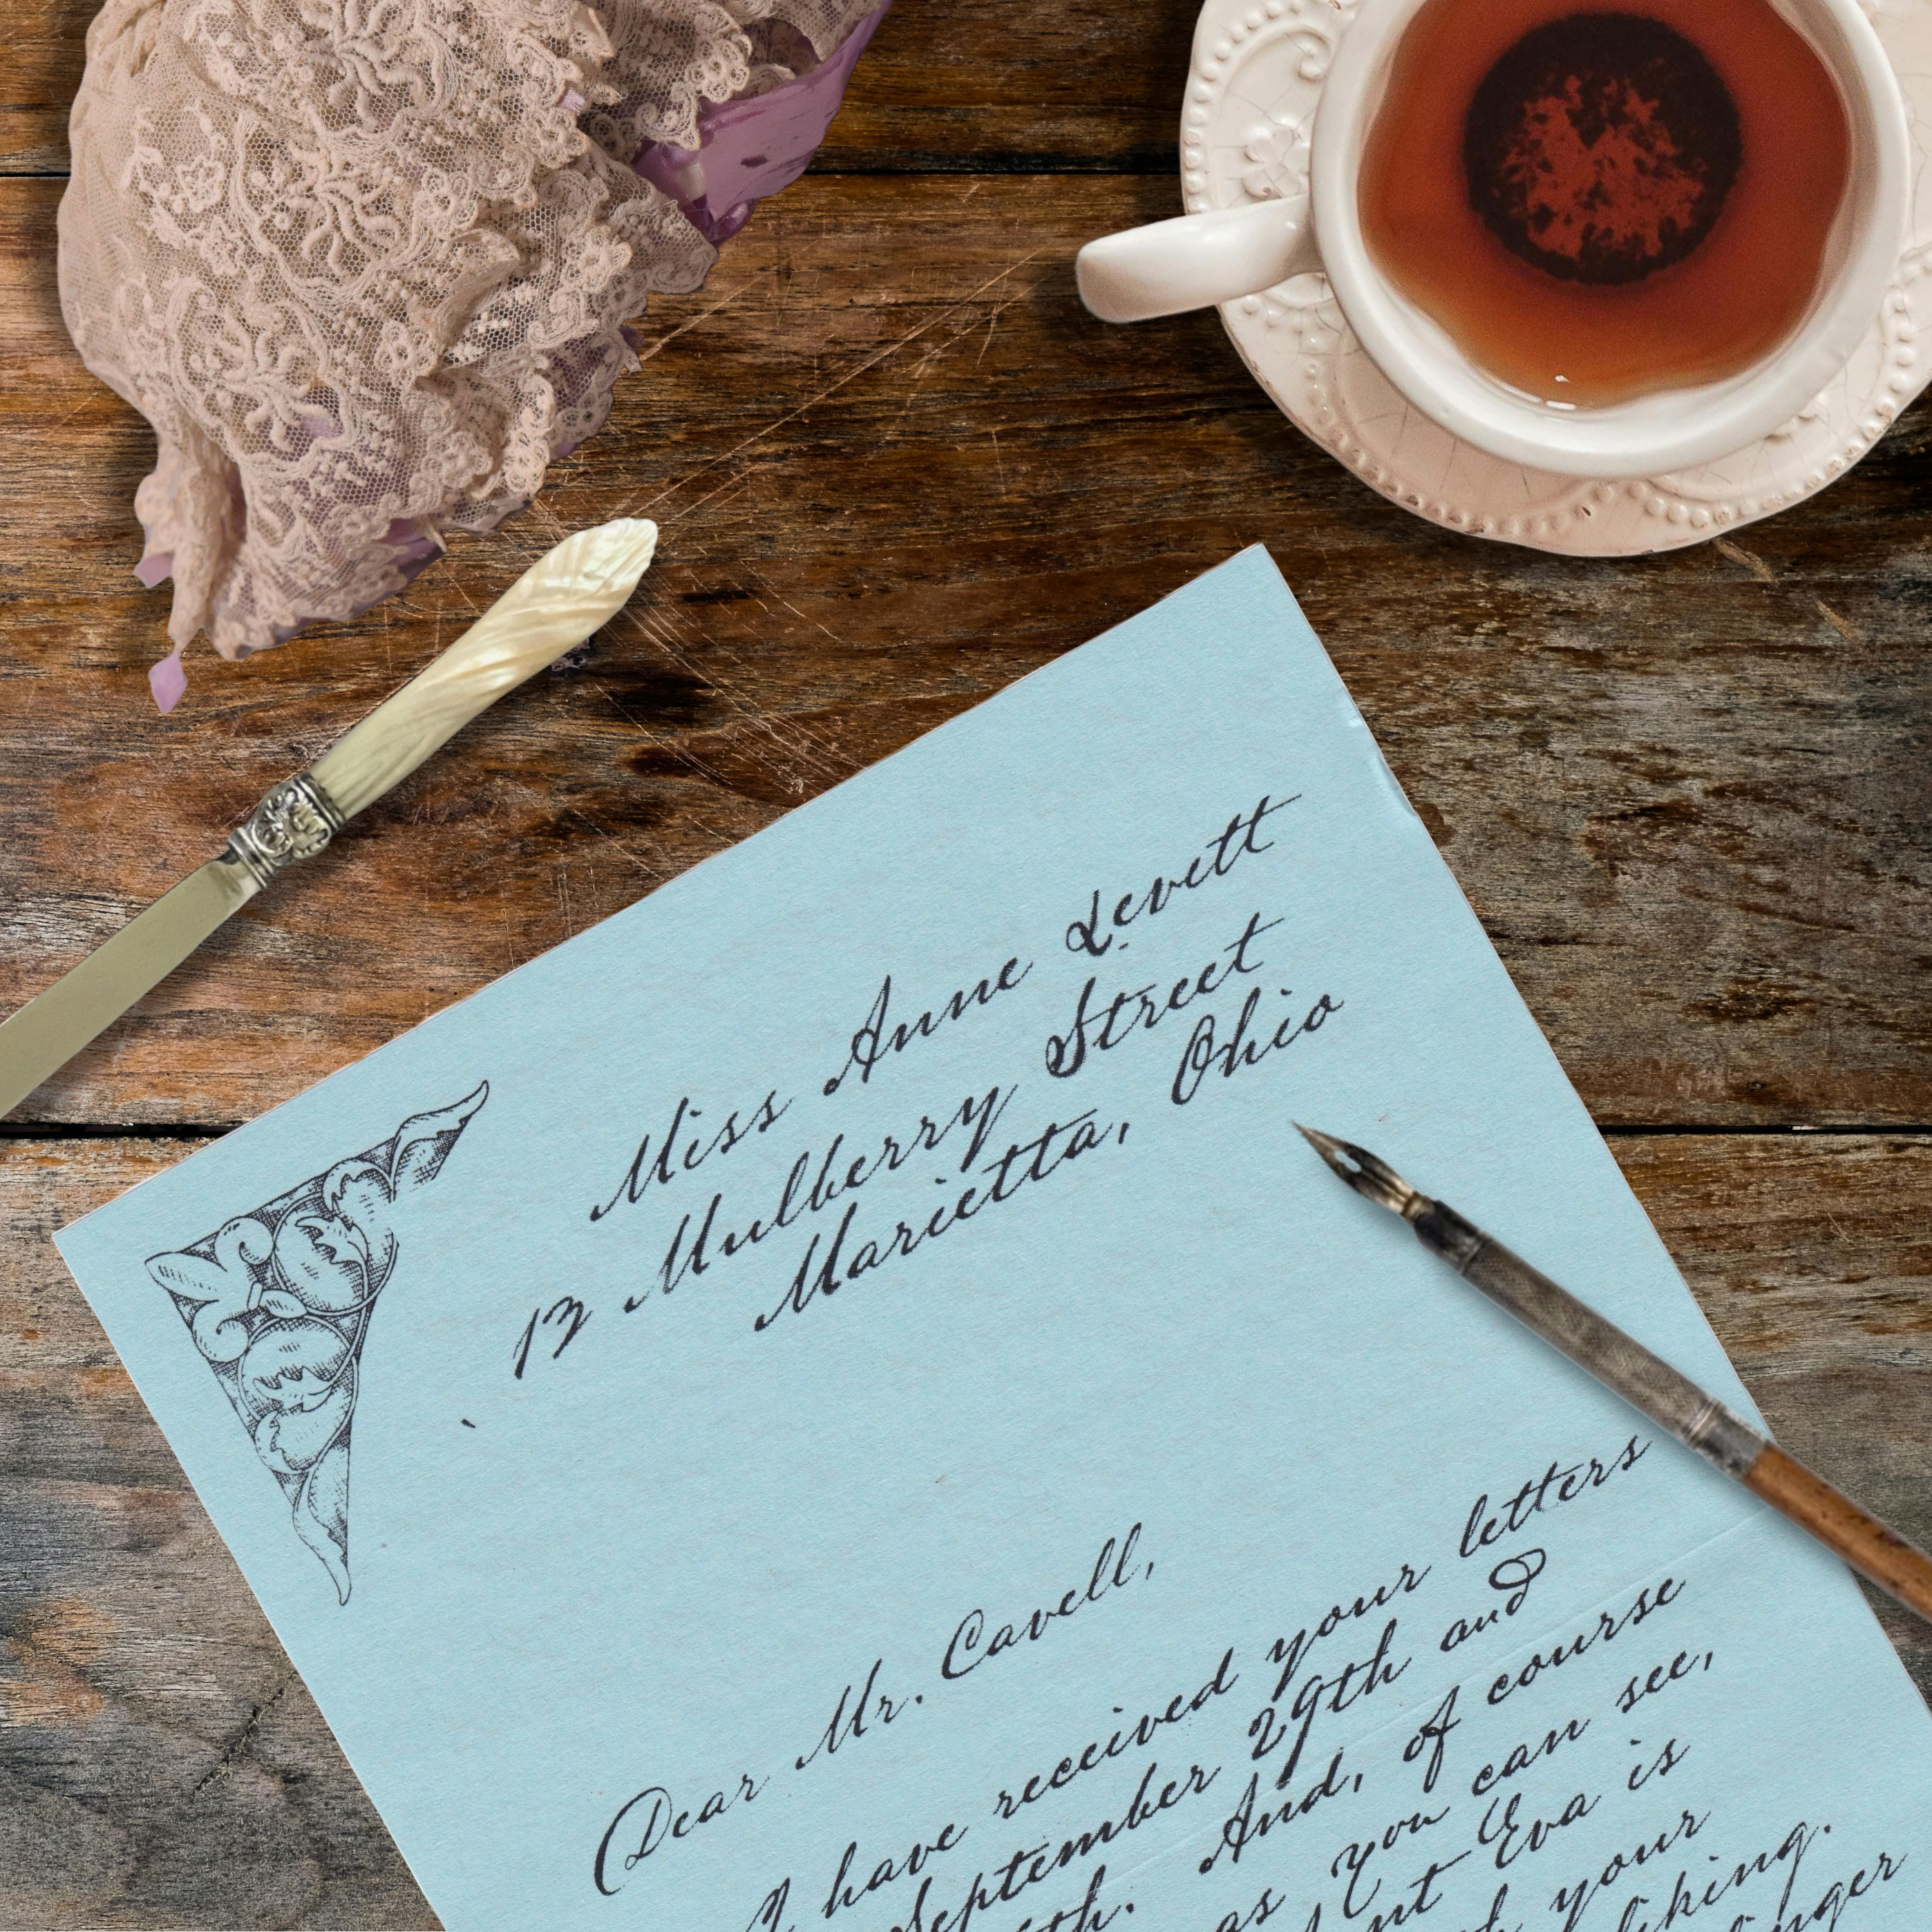 Miss Anne Levett
13 Mulberry Street
Marietta, Ohio
Dear Mr. Cavell,
I have received your letters
September 29th and
And, of course
as you can see,
Eva is
your
liking.